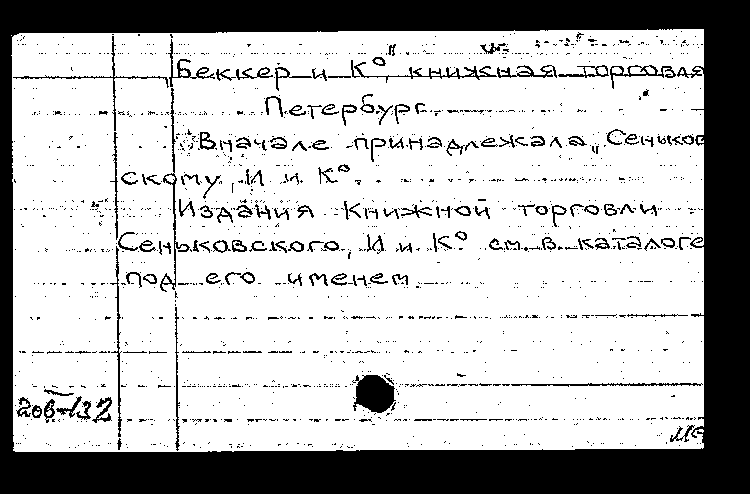 „Беккер и К°", книжная торговля
Петербург.
Вначале принадлежала „Сеньков
скому, И и К°.
Издания Книжной торговли
Сеньковского, И и К° см. в каталоге
под его именем
20в-132